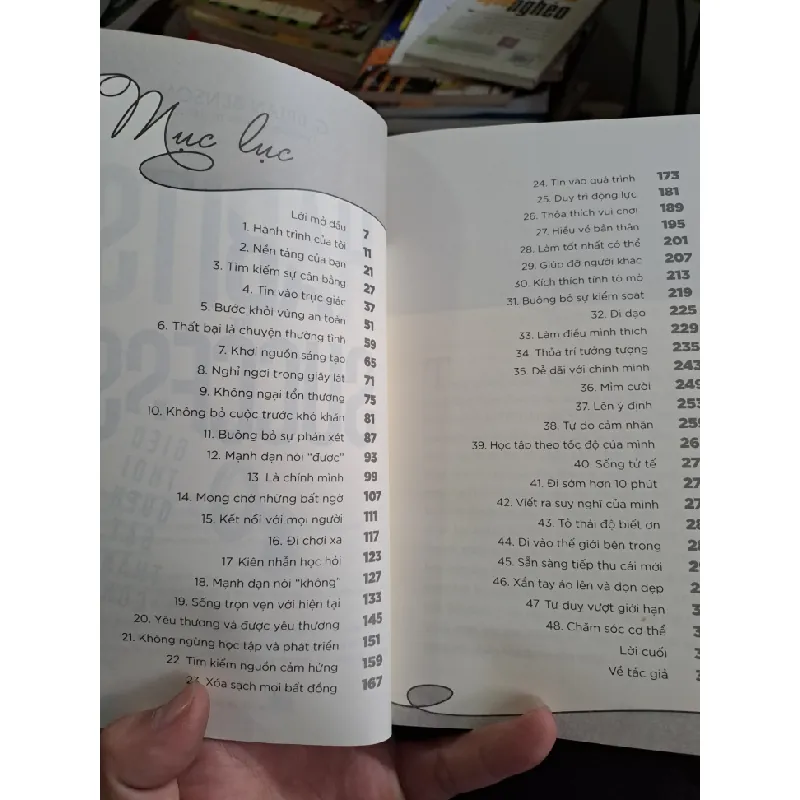 nghèo
Mục lục
Lời mở đầu 7
1. Hành trình của tôi 11
2. Nền tảng của bạn 21
3. Tìm kiếm sự cân bằng 27
4. Tin vào trực giác 37
5. Bước khỏi vùng an toàn 51
6. Thất bại là chuyện thường tình 59
7. Khơi nguồn sáng tạo 65
8. Nghỉ ngơi trong giây lát 71
9. Không ngại tổn thương 75
10. Không bỏ cuộc trước khó khăn 81
11. Buông bỏ sự phán xét 87
12. Mạnh dạn nói "được" 93
13. Là chính mình 99
14. Mong chờ những bất ngờ 107
15. Kết nối với mọi người 111
16. Đi chơi xa 117
17. Kiên nhẫn học hỏi 123
18. Mạnh dạn nói "không" 127
19. Sống trọn vẹn với hiện tại 133
20. Yêu thương và được yêu thương 145
21. Không ngừng học tập và phát triển 151
22. Tìm kiếm nguồn cảm hứng 159
23. Xóa sạch mọi bất đồng 167
24. Tin vào quá trình 173
25. Duy trì động lực 181
26. Thỏa thích vui chơi 189
27. Hiểu về bản thân 195
28. Làm tốt nhất có thể 201
29. Giúp đỡ người khác 207
30. Kích thích tính tò mò 213
31. Buông bỏ sự kiểm soát 219
32. Đi dạo 225
33. Làm điều mình thích 229
34. Thỏa trí tưởng tượng 235
35. Dễ dãi với chính mình 243
36. Mỉm cười 249
37. Lên ý định 253
38. Tự do cảm nhận 259
39. Học tập theo tốc độ của mình 26
40. Sống tử tế 27
41. Đi sớm hơn 10 phút 27
42. Viết ra suy nghĩ của mình 27
43. Tỏ thái độ biết ơn 28
44. Đi vào thế giới bên trong 28
45. Sẵn sàng tiếp thu cái mới 29
46. Xắn tay áo lên và dọn dẹp 2
47. Tư duy vượt giới hạn 3
48. Chăm sóc cơ thể 3
Lời cuối 3
Về tác giả 3